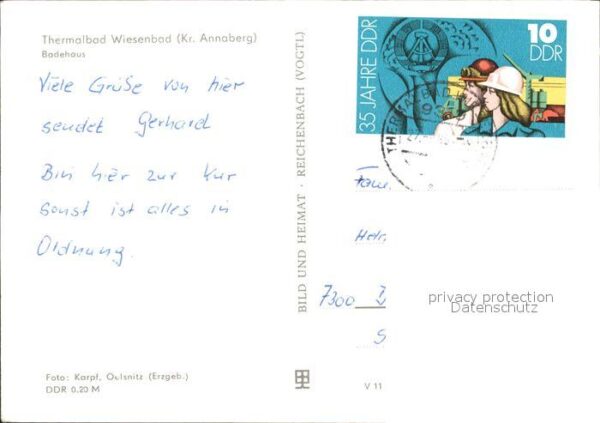 Thermalbad Wiesenbad (Kr. Annaberg)
Badehaus
Viele Grüße von hier
sendet Gerhard
Bin hier zur Kur
sonst ist alles in
Ordnung.
Foto: Karpf, Oelsnitz (Erzgeb.)
DDR 0,20 M
BILD UND HEIMAT · REICHENBACH (VOGTL)
35 JAHRE DDR
10
DDR
Fam
7300
S
privacy protection
Datenschutz
V 11